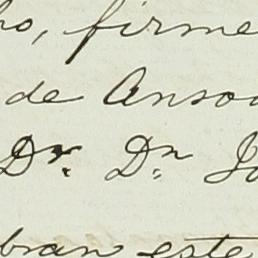 ho, firme
de Anso
Dr. Dn
bran este